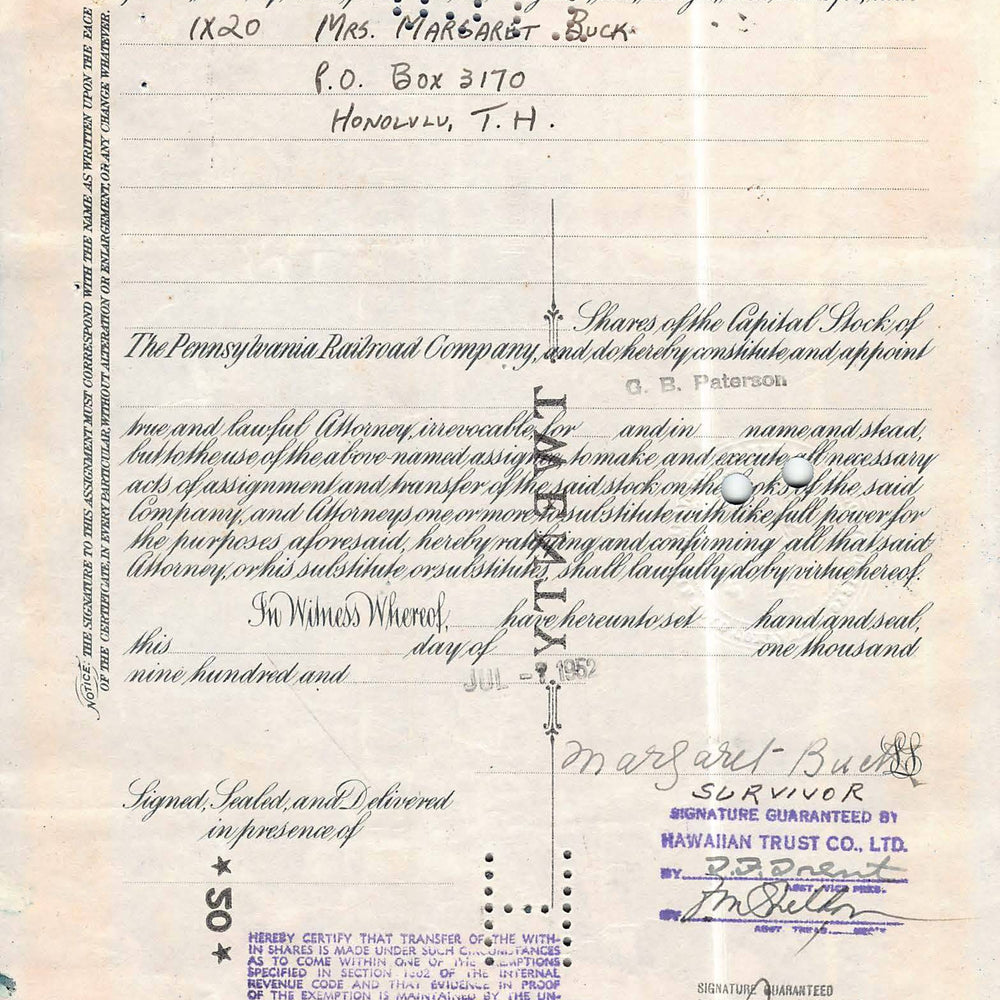 1X20 MRS. MARGARET BUCK
P.O. BOX 3170
HONOLULU, T.H.
NOTICE: THE SIGNATURE TO THIS ASSIGNMENT MUST CORRESPOND WITH THE NAME AS WRITTEN UPON THE FACE
OF THE CERTIFICATE, IN EVERY PARTICULAR, WITHOUT ALTERATION OR ENLARGEMENT, OR ANY CHANGE WHATEVER.
Shares of the Capital Stock of
The Pennsylvania Railroad Company, and do hereby constitute and appoint
G. B. Paterson
true and lawful Attorney, irrevocable, for and in name and stead,
but to the use of the above-named assignee, to make, and execute, all necessary
acts of assignment and transfer of the said stock on the books of the said
Company, and Attorneys one or more, to substitute with like full power for
the purposes aforesaid, hereby ratifying and confirming all that said
Attorney, or his substitute, or substitutes, shall lawfully do by virtue hereof.
TWENTY
In Witness Whereof, have hereunto set hand and seal,
this day of one thousand
nine hundred and
JUL 1952
Margaret Buck LS
SURVIVOR
Signed, Sealed, and Delivered
in presence of
SIGNATURE GUARANTEED BY
HAWAIIAN TRUST CO., LTD.
BY
ASST. VICE PRES.
BY
★ 50 ★
HEREBY CERTIFY THAT TRANSFER OF THE WITH-
IN SHARES IS MADE UNDER SUCH CIRCUMSTANCES
AS TO COME WITHIN ONE OF THE EXEMPTIONS
SPECIFIED IN SECTION 1802 OF THE INTERNAL
REVENUE CODE AND THAT EVIDENCE IN PROOF
OF THE EXEMPTION IS MAINTAINED BY THE UN-
SIGNATURE GUARANTEED